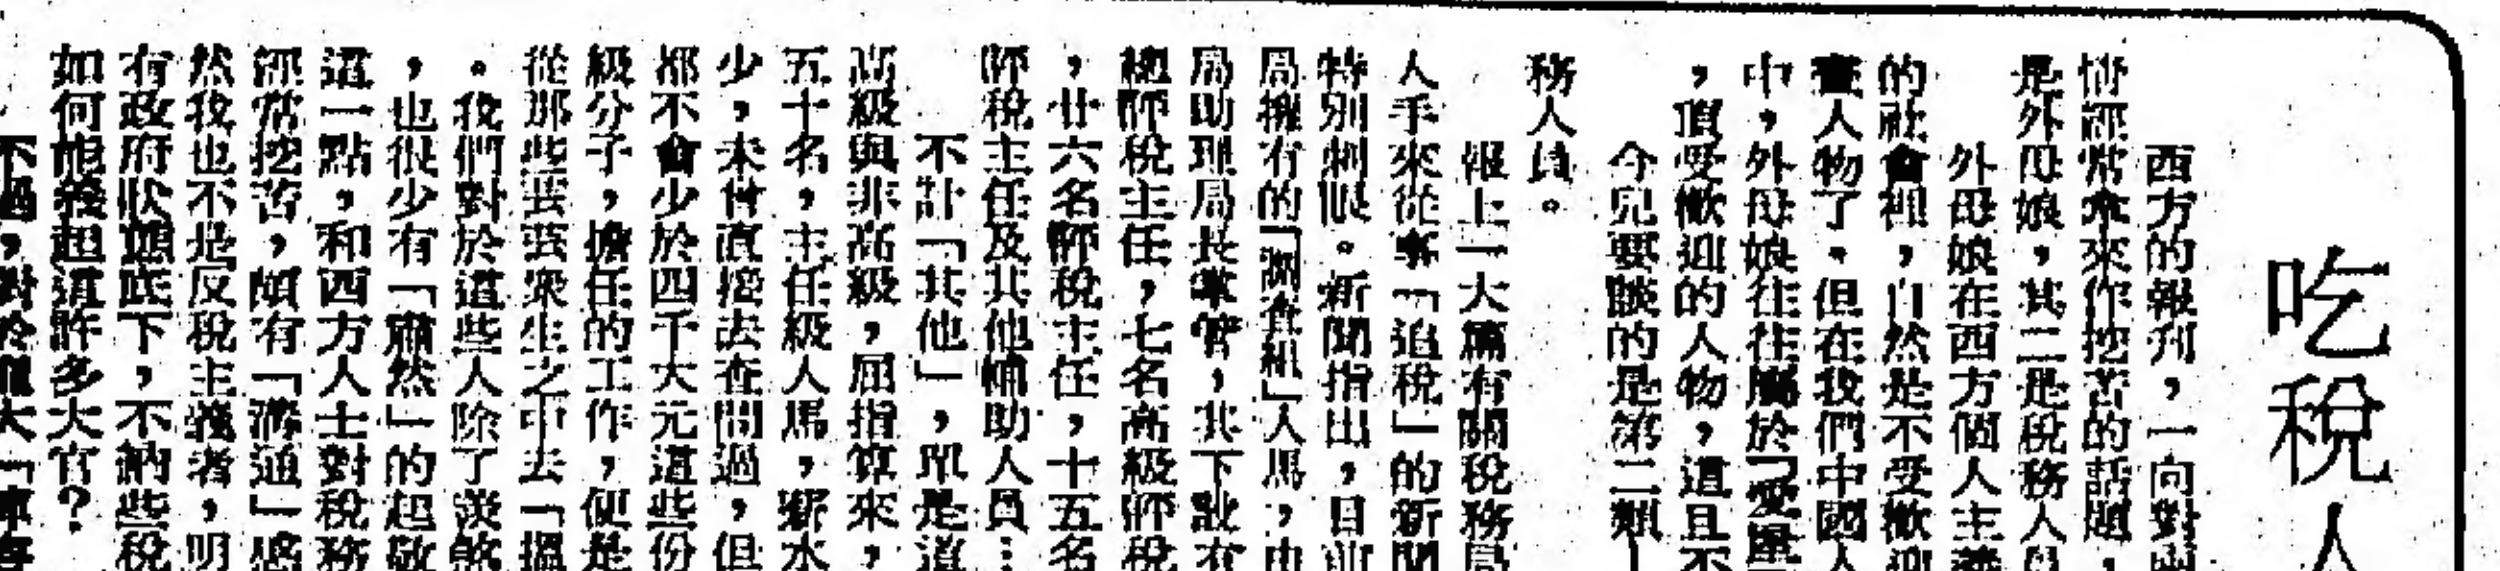 吃稅人
西方的報刊，一向對兩
情經常拿來作挖苦的話題，
是外母娘，其二是稅務人員
外母娘在西方個人主義
的社會裡，自然是不受歡迎
人物了。但在我們中國人
中，外母娘往往屬於「受重
，頂受歡迎的人物，這且不
今兒要談的是第二類—
務人員。
報上一大篇有關稅務局
人手來從事「追稅」的新聞
特別刺眼。新聞指出，目前
局擁有的「調查組」人馬，由
局助理局長掌管，其下設有
總評稅主任，七名高級評稅
，廿六名評稅主任，十五名
評稅主任及其他輔助人員…
不計「其他」，單是這
高級與非高級，屈指算來，
五十名，主任級人馬，薪水
少，未曾直接去查問過，但
都不會少於四千大元這些份
級分子，擔任的工作，便是
從那些芸芸衆生之中去「搵
。我們對於這些人除了羨煞
，也很少有「肅然」的起敬
這一點，和西方人士對稅務
經常挖苦，頗有「溝通」感
然我也不是反稅主義者，明
有政府狀態底下，不納些稅
如何能養起這許多大官？
不過，對於龐大「